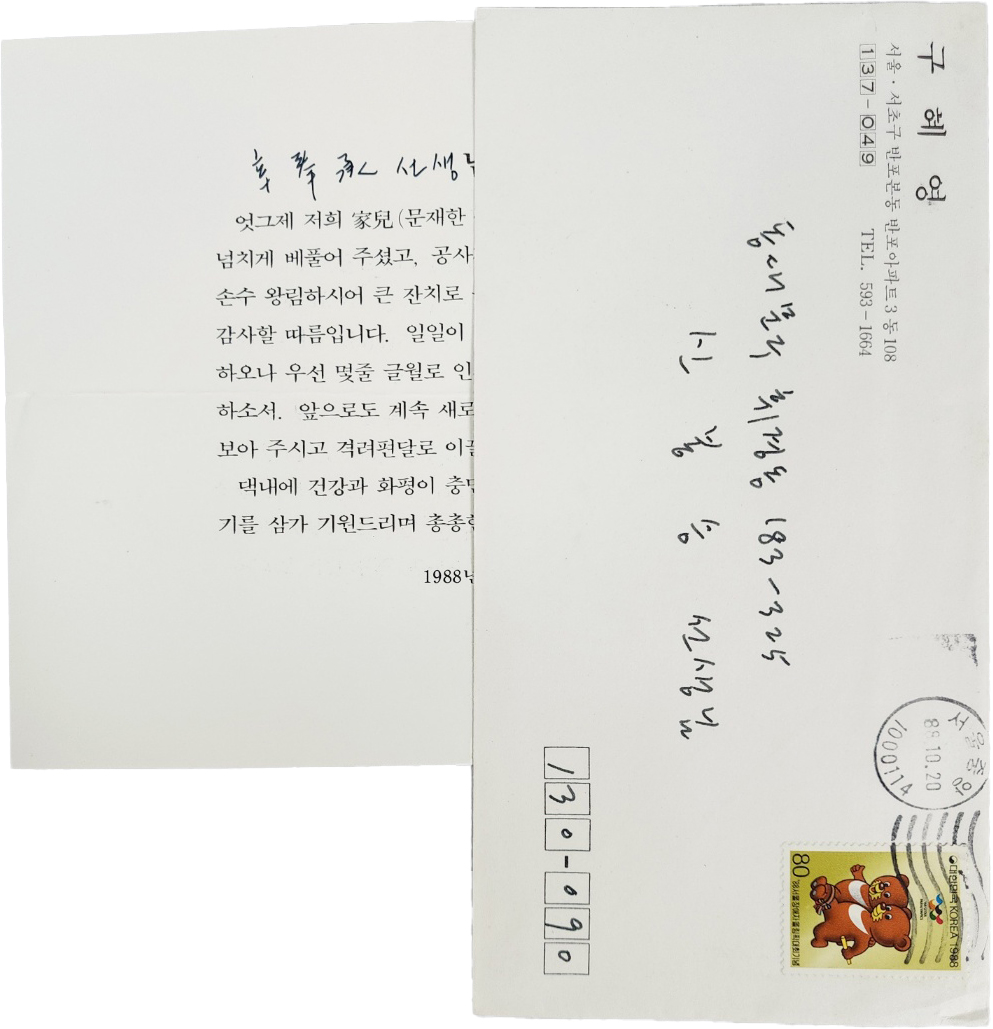 辛奉承 선생님
엇그제 저희 家兒(문재한
넘치게 베풀어 주셨고, 공사
손수 왕림하시어 큰 잔치로
감사할 따름입니다. 일일이
하오나 우선 몇줄 글월로 인
하소서. 앞으로도 계속 새로
보아 주시고 격려편달로 이끌
댁내에 건강과 화평이 충만
기를 삼가 기원드리며 총총
1988년
구혜영
서울·서초구 반포본동 반포아파트 3동 108
137-049 TEL. 593-1664
동대문구 휘경동 183-325
신봉승 선생님
130-090
서울중앙
88.10.20
1000114
대한민국 KOREA 1988
80
'88서울장애자올림픽대회기념